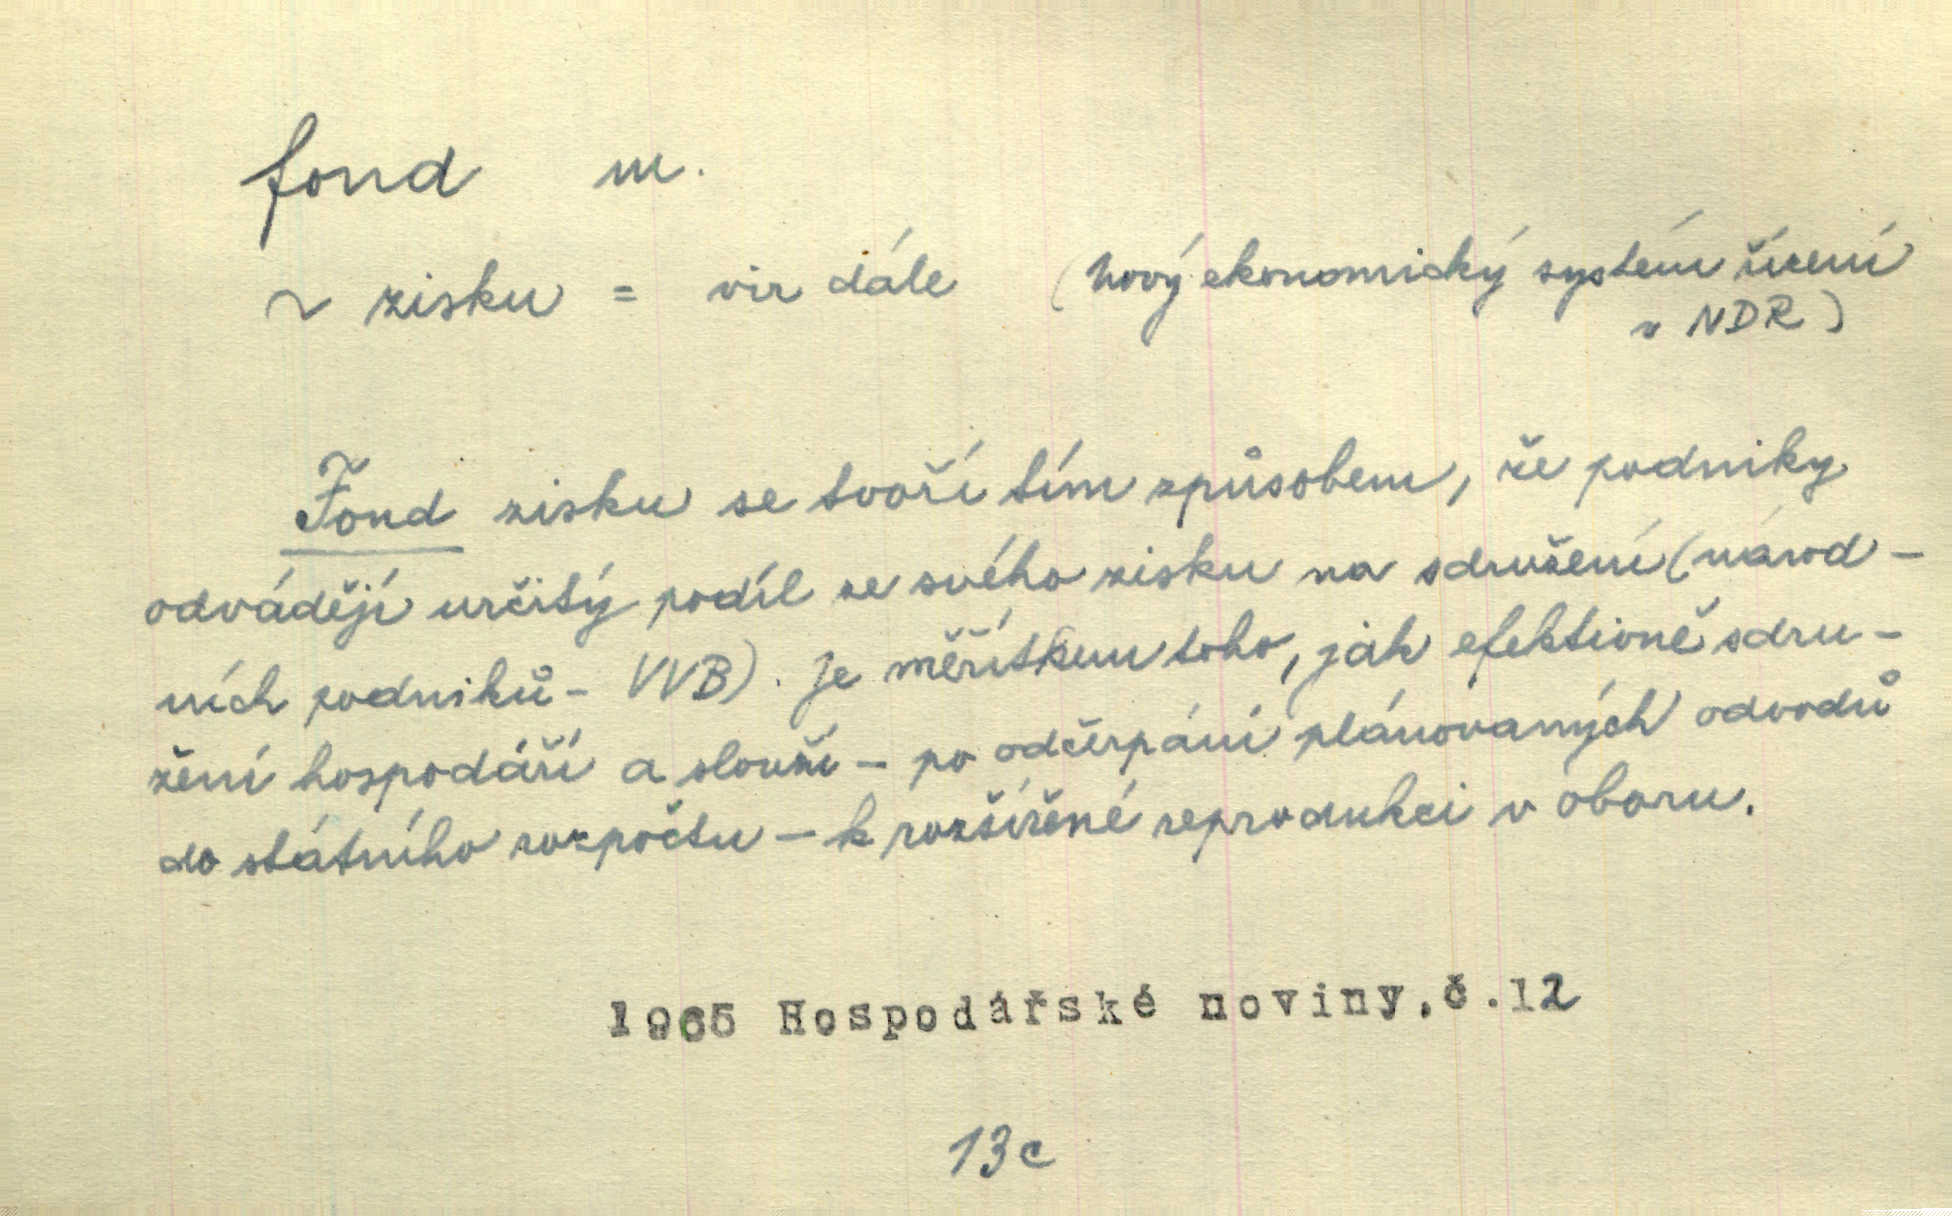 fond m.
~ zisku = viz dále (Nový ekonomický systém řízení
v NDR)
Fond zisku se tvoří tím způsobem, že podniky
odvádějí určitý podíl ze svého zisku na sdružení (národ-
ních podniků - VVB). Je měřítkem toho, jak efektivně sdru-
žení hospodáří a slouží - po odčerpání plánovaných odvodů
do státního rozpočtu - k rozšířené reprodukci v oboru.
1965 Hospodářské noviny, č.12
13c